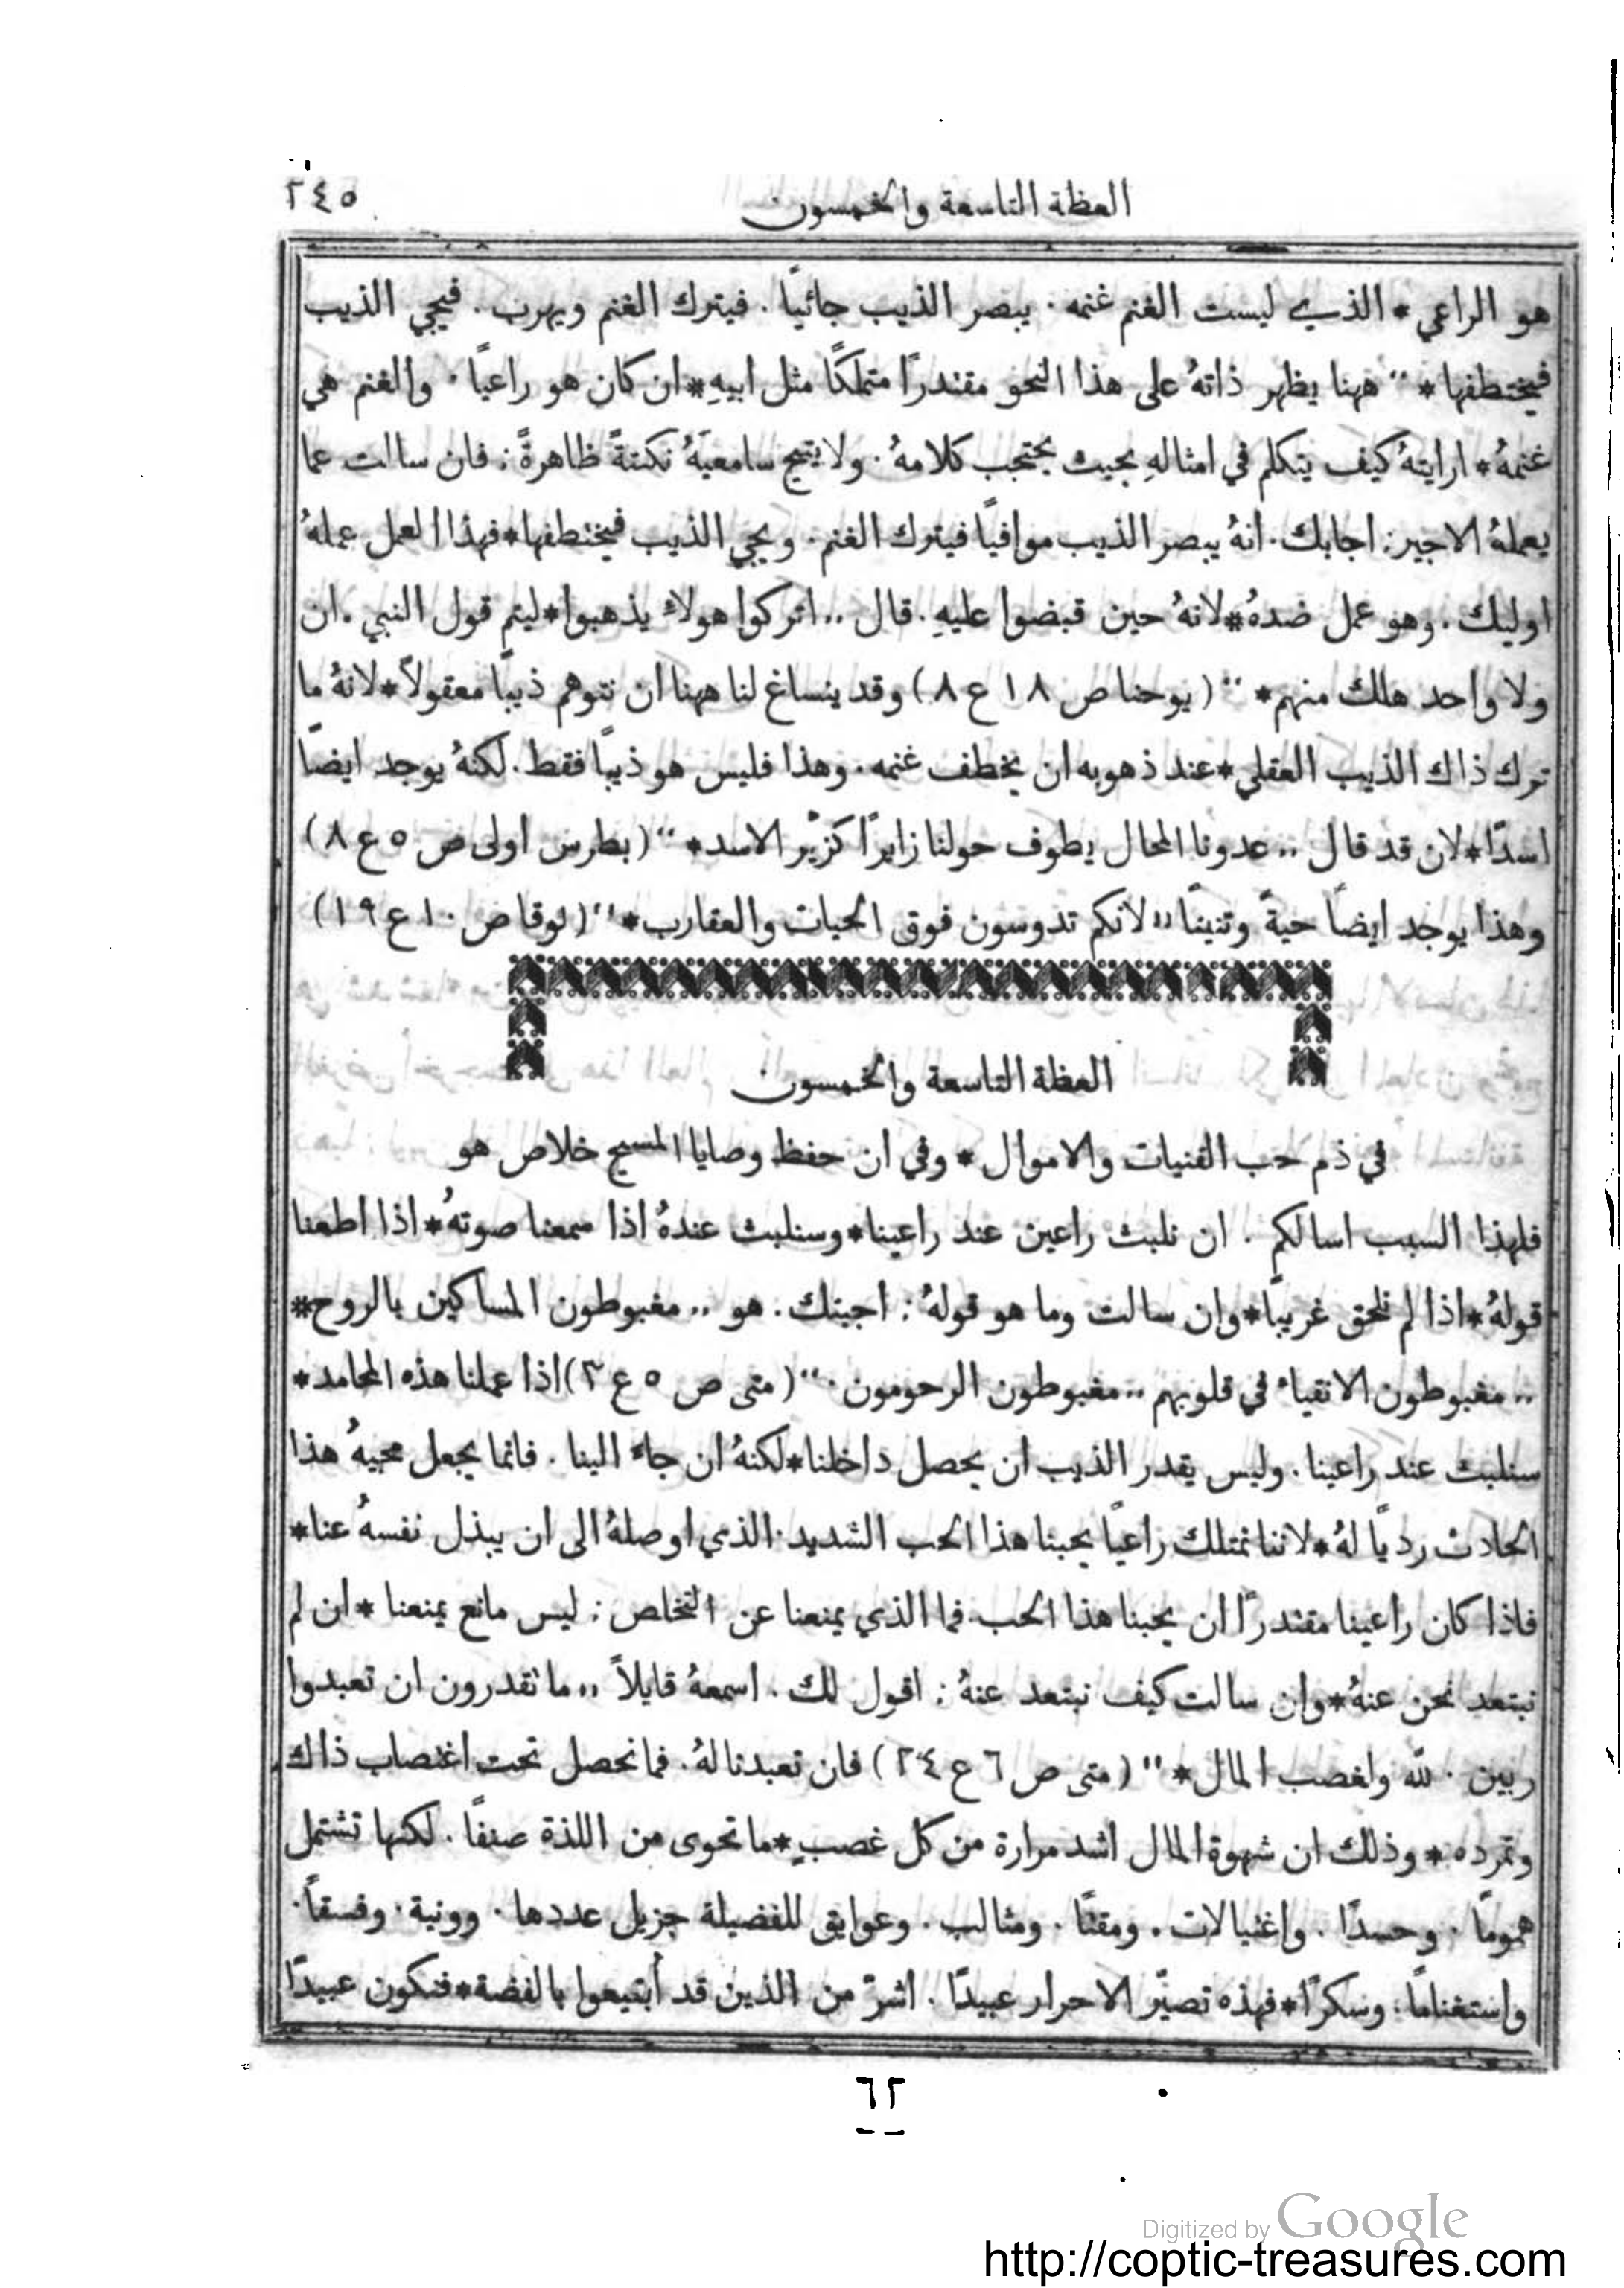 العظة التاسعة والخمسون ٢٤٥
هو الراعي * الذي ليست الغنم غنمه . يبصر الذيب جائيًا . فيترك الغنم ويهرب . فيجي الذيب
فيختطفها * ,, ههنا يظهر ذاتهُ على هذا النحو مقتدرًا متملكًا مثل ابيهِ * ان كان هو راعيًا . والغنم هي
غنمهُ * ارايتهُ كيف يتكلم في امثالهِ بحيث يحتجب كلامهُ . ولا يتيح سامعيَهُ نكتةً ظاهرةً : فان سالت عما
يعملهُ الاجير : اجابك . انهُ يبصر الذيب موافيًا فيترك الغنم . ويجي الذيب فيختطفها * فهذا العمل عملهُ
اوليك . وهو عمل ضدهُ * لانهُ حين قبضوا عليهِ . قال ,, اتركوا هولاء يذهبوا * ليتم قول النبي . ان
ولا واحد هلك منهم * ,, ( يوحنا ص ١٨ ع ٨ ) وقد ينساغ لنا ههنا ان نتوهم ذيبًا معقولاً * لانهُ ما
ترك ذاك الذيب العقلي * عند ذهوبه ان يخطف غنمه . وهذا فليس هو ذيبًا فقط . لكنهُ يوجد ايضًا
اسدًا * لان قد قال ,, عدونا المحال يطوف حولنا زايرًا كزير الاسد * ,, ( بطرس اولى ص ٥ ع ٨ )
وهذا يوجد ايضًا حيةً وتنينًا ,, لانكم تدوسون فوق الحيات والعقارب * ,, ( لوقا ص ١٠ ع ١٩ )
العظة التاسعة والخمسون
في ذم حب القنيات والاموال * وفي ان حفظ وصايا المسيح خلاص هو
فلهذا السبب اسالكم . ان نلبث راعين عند راعينا * وسنلبث عندهُ اذا سمعنا صوتهُ * اذا اطعنا
قولهُ * اذا لم نلحق غريبًا * وان سالت وما هو قولهُ : اجبتك . هو ,, مغبوطون المساكين بالروح *
,, مغبوطون الانقياء في قلوبهم ,, مغبوطون الرحومون . ,, ( متى ص ٥ ع ٣ ) اذا عملنا هذه المحامد *
سنلبث عند راعينا . وليس يقدر الذيب ان يحصل داخلنا * لكنهُ ان جاء الينا . فانما يجعل مجيهُ هذا
الحادث رديًا لهُ * لاننا نمتلك راعيًا يحبنا هذا الحب الشديد . الذي اوصلهُ الى ان يبذل نفسهُ عنا *
فاذا كان راعينا مقتدرًا ان يحبنا هذا الحب . فما الذي يمنعنا عن التخلص : ليس مانع يمنعنا * ان لم
نبتعد نحن عنهُ * وان سالت كيف نبتعد عنهُ : اقول لك . اسمعهُ قايلاً ,, ما تقدرون ان تعبدوا
ربين . لله ولغصب المال * ,, ( متى ص ٦ ع ٢٤ ) فان تعبدنا لهُ . فما نحصل تحت اغتصاب ذاك
وتمرده * وذلك ان شهوة المال اشد مرارة من كل غصبٍ * ما تحوى من اللذة صنفًا . لكنها تشتمل
همومًا . وحسدًا . واغتيالات . ومقتًا . ومثالب . وعوايق للفضيلة جزيل عددها . وونية . وفسقًا .
واستغنامًا . وسكرًا * فهذه تصيّر الاحرار عبيدًا . اشرّ من الذين قد أبتيعوا بالفضة * فتكون عبيدًا
٦٢
Digitized by Google
http://coptic-treasures.com